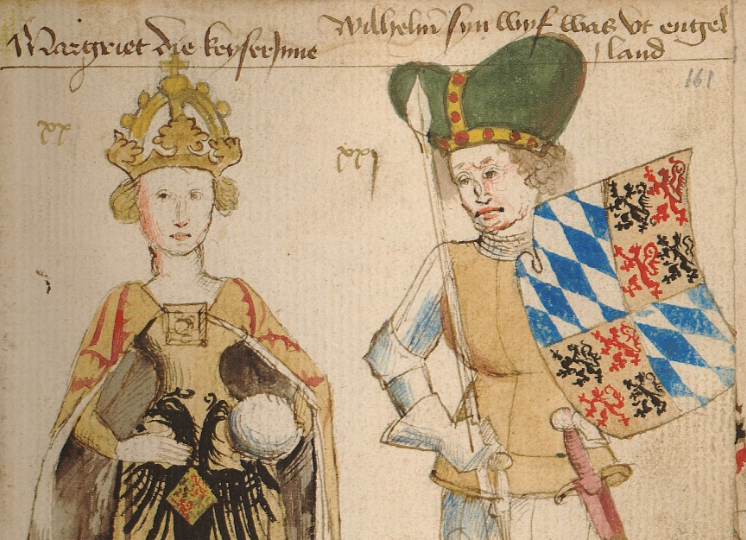 Margriet die keyserinne
Wilhelm syn wyf was vt engel
land
161
xx
xxj